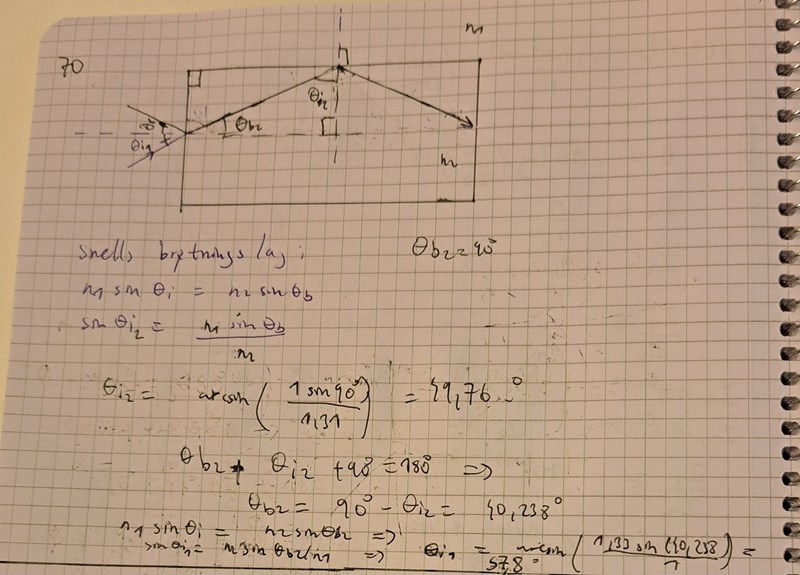 70
n1
θi2
θb2
θi1
n2
Snells brytnings lag:
θb2 = 90°
n1 sin θi = n2 sin θb
sin θi2 = n1 sin θb / n2
θi2 = arcsin ( 1 sin 90° / 1,31 ) = 49,76..°
θb2 + θi2 + 90° = 180° =>
θb2 = 90° - θi2 = 40,238°
n1 sin θi = n2 sin θb2 =>
sin θi1 = n2 sin θb2/n1 => θi1 = arcsin ( 1,33 sin (40,238) / 1 ) =
57,8°